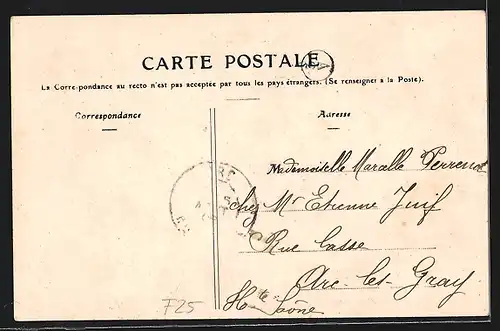 CARTE POSTALE
La Correspondance au recto n'est pas acceptée par tous les pays étrangers. (Se renseigner à la Poste).
Correspondance
Adresse
Mademoiselle Marcelle Perrenot
chez Mr Etienne Juif
Rue Casse
Arc-les-Gray
Hte Saône
F25